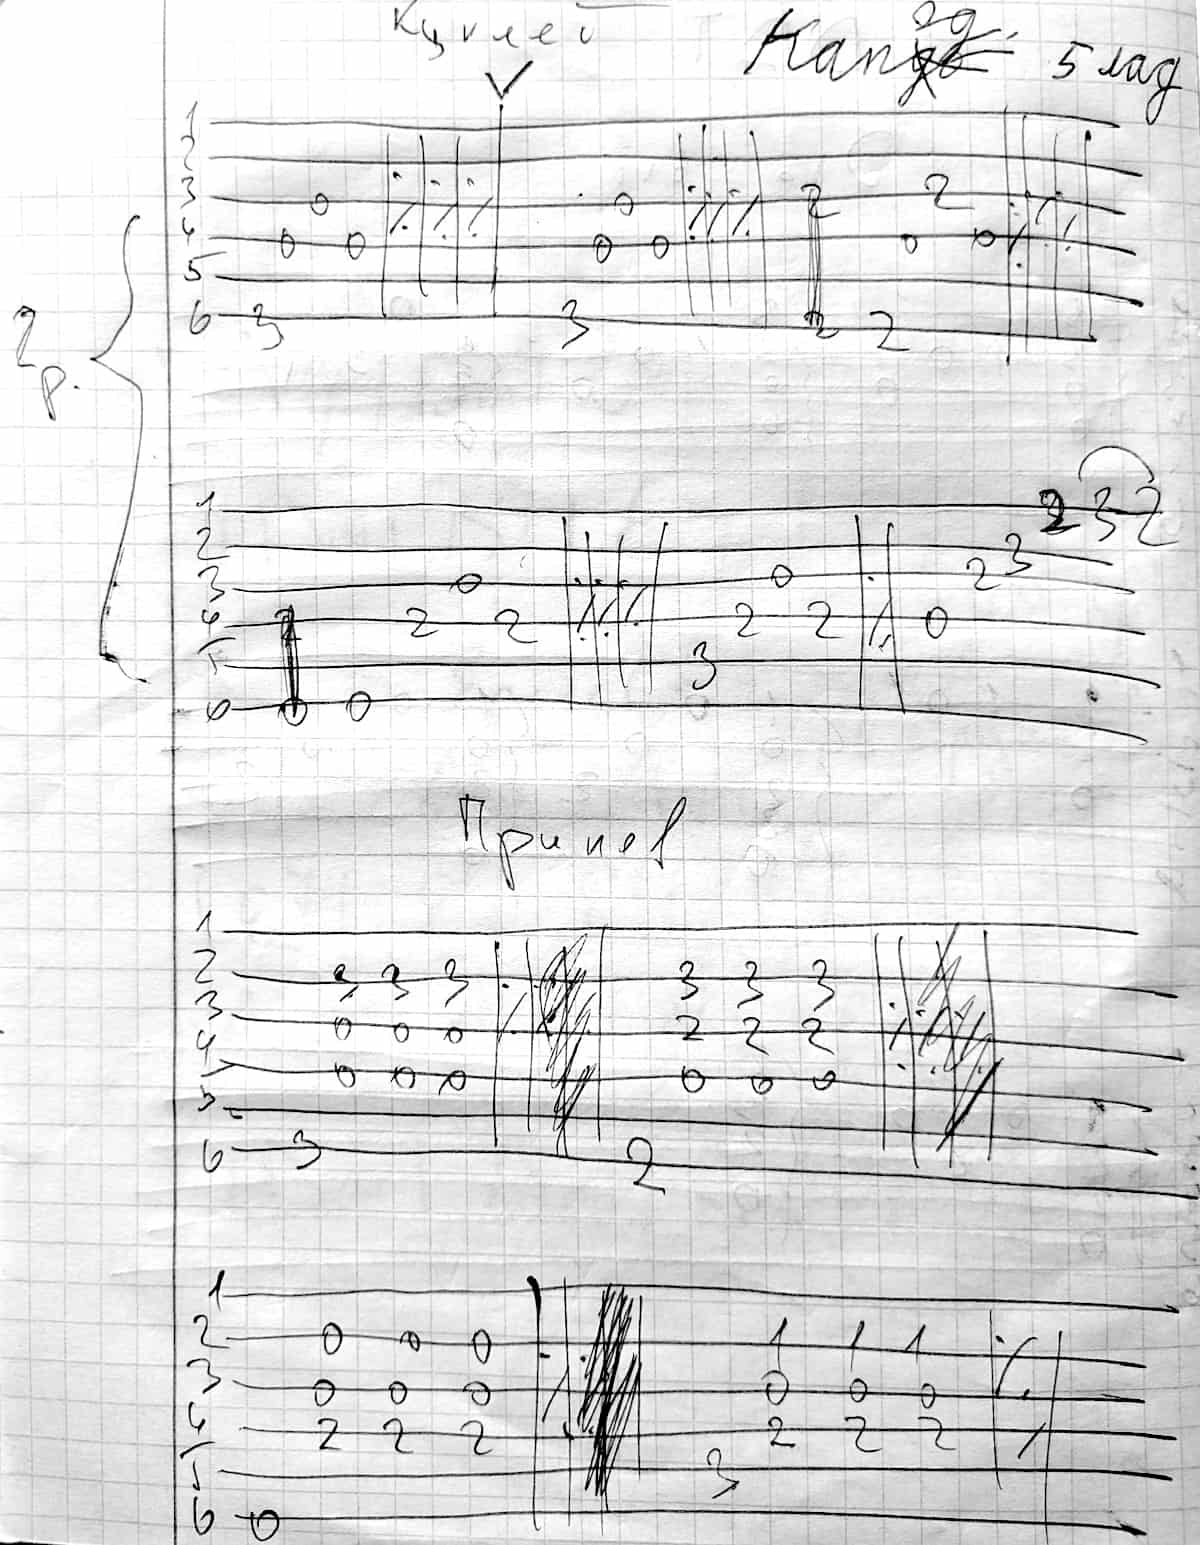 Куплет
Капо 5 лад
1
2
3 0 0 2 2
4 0 0 0 0 0 0
5
6 3 3 2 2
2 р.
1 2 3 2
2 3
3 0 0 2
4 2 2 2 2 2 0
5 3
6 0 0
Припев
1
2 3 3 3 3 3 3
3 0 0 0 2 2 2
4 0 0 0 0 0 0
5
6 3 2
1
2 0 0 0 1 1 1
3 0 0 0 0 0 0
4 2 2 2 2 2 2
5 3
6 0